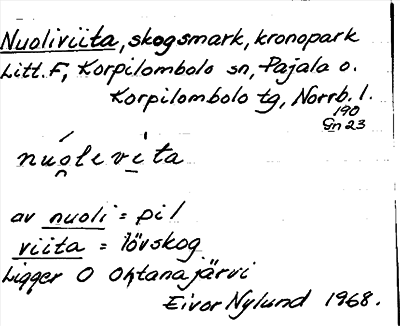 Nuoliviita, skogsmark, kronopark
Litt. F, Korpilombolo sn, Pajala o.
Korpilombolo tg, Norrb. l.
190
Gn 23
núo̯levi̱ta
av nuoli = pil
viita = lövskog
Ligger O Ohtanajärvi
Eivor Nylund 1968.